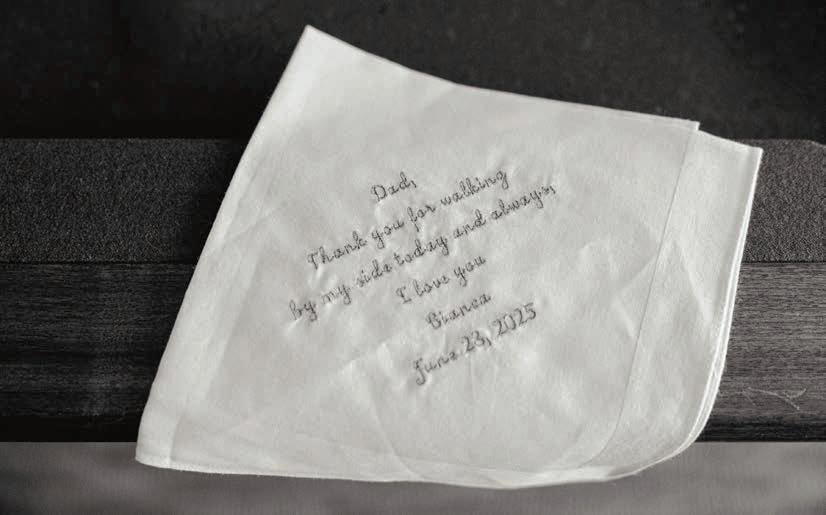 Dad,
Thank you for walking
by my side today and always,
I love you
Bianca
June 23, 2025